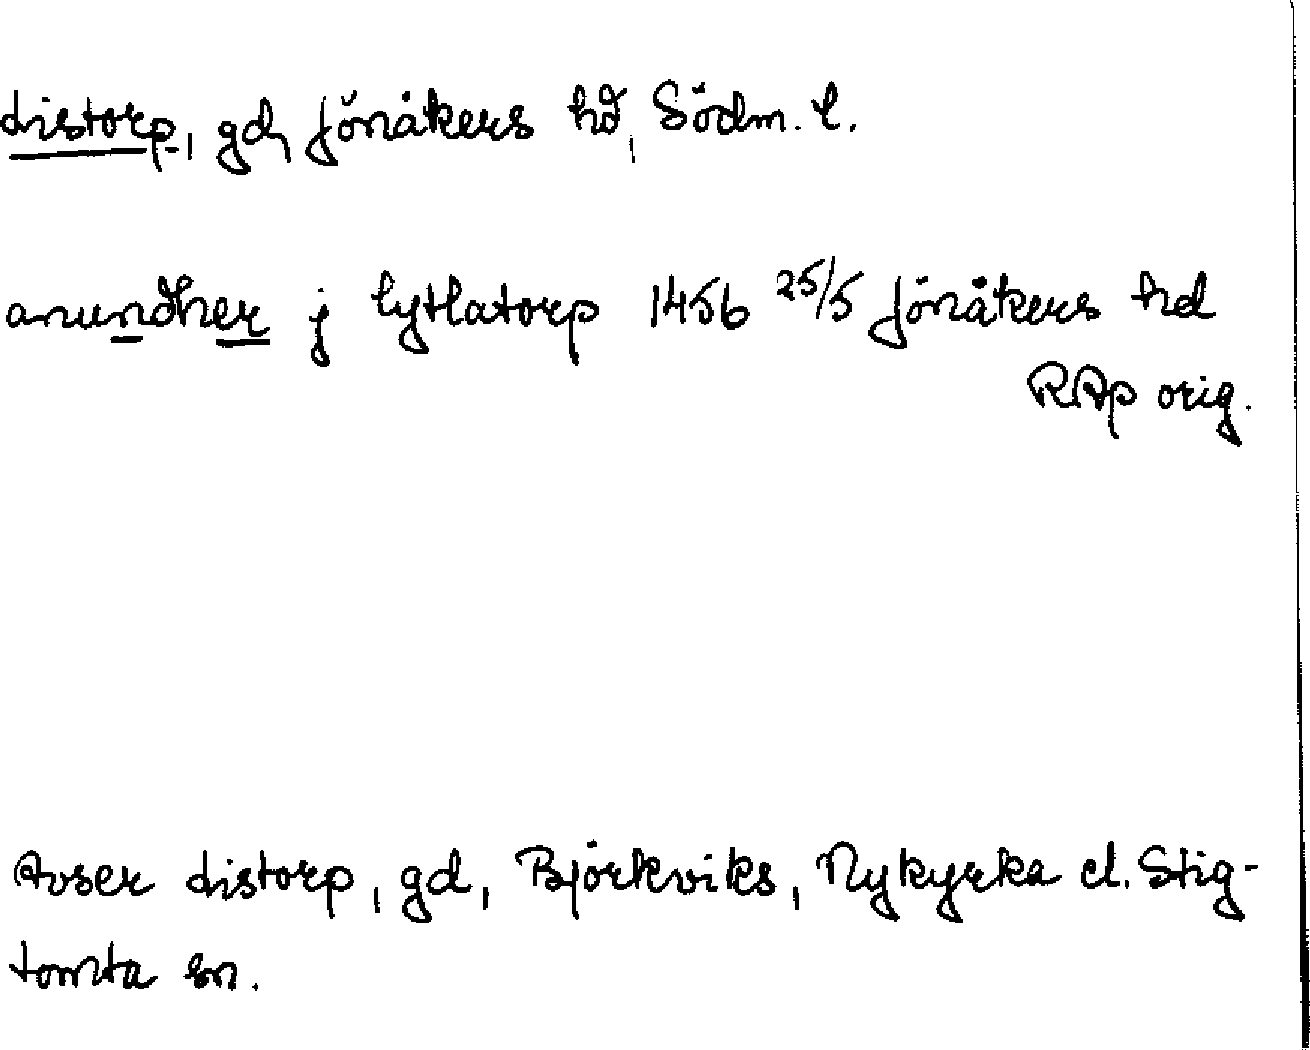 Listorp, gd, Jönåkers hd, Södm. l.
anundher j lytlatorp 1456 25/5 Jönåkers hd
RAp orig.
Avser Listorp, gd, Björkviks, Nykyrka el. Stig-
tomta sn.